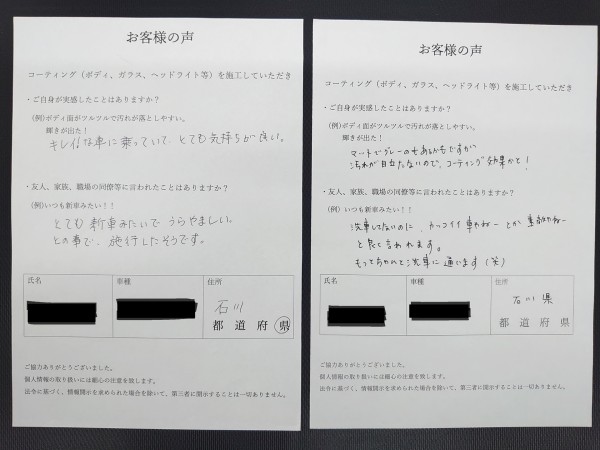 お客様の声
コーティング（ボディ、ガラス、ヘッドライト等）を施工していただき
・ご自身が実感したことはありますか？
(例)ボディ面がツルツルで汚れが落としやすい。
輝きが出た！
キレイな車に乗っていて、とても気持ちが良い。
・友人、家族、職場の同僚等に言われたことはありますか？
(例)いつも新車みたい！！
とても新車みたいでうらやましい。
との事で、施行したそうです。
氏名
車種
住所
石川
都 道 府 県
ご協力ありがとうございました。
個人情報の取り扱いには細心の注意を致します。
法令に基づく、情報開示を求められた場合を除いて、第三者に開示することは一切ありません。
お客様の声
コーティング（ボディ、ガラス、ヘッドライト等）を施工していただき
・ご自身が実感したことはありますか？
(例)ボディ面がツルツルで汚れが落としやすい。
輝きが出た！
マットでグレーのせあるかもですが
汚れが目立たないので、コーティング効果かと！
・友人、家族、職場の同僚等に言われたことはありますか？
(例)いつも新車みたい！！
洗車してないのに、カッコイイ車やねー とか
と良く言われます。
もってちゃんと洗車に通います（笑）
氏名
車種
住所
石川県
都 道 府 県
ご協力ありがとうございました。
個人情報の取り扱いには細心の注意を致します。
法令に基づく、情報開示を求められた場合を除いて、第三者に開示することは一切ありません。